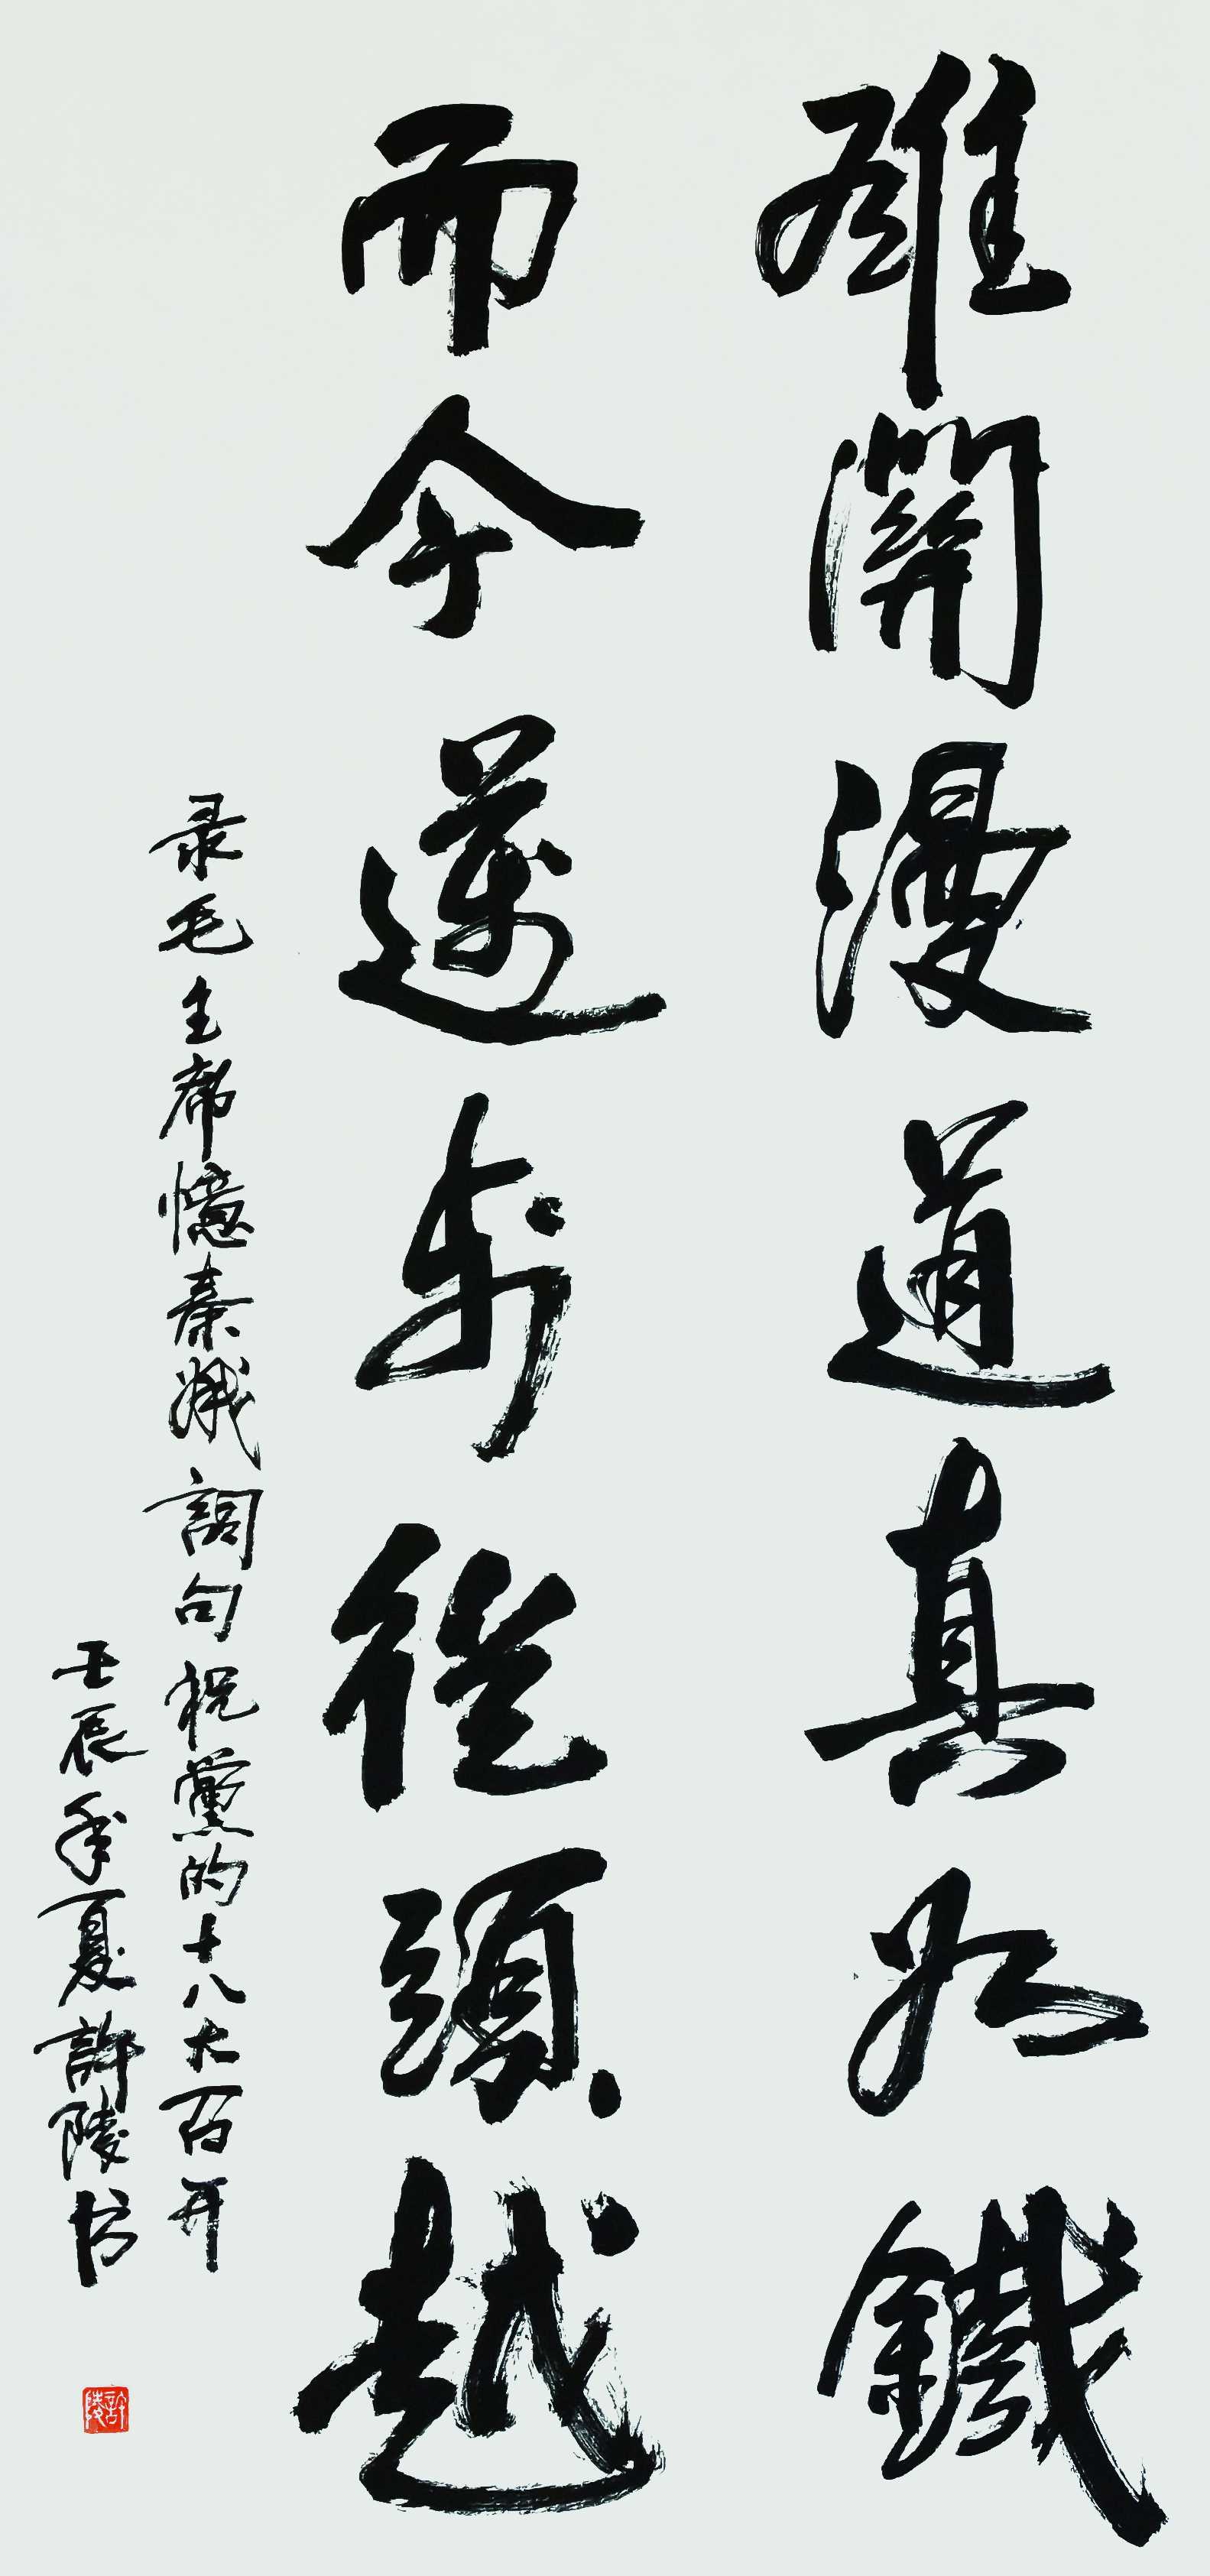 雄關漫道真如鐵
而今邁步從頭越
录毛主席憶秦娥詞句祝黨的十八大召开
壬辰年夏許陵书
許陵